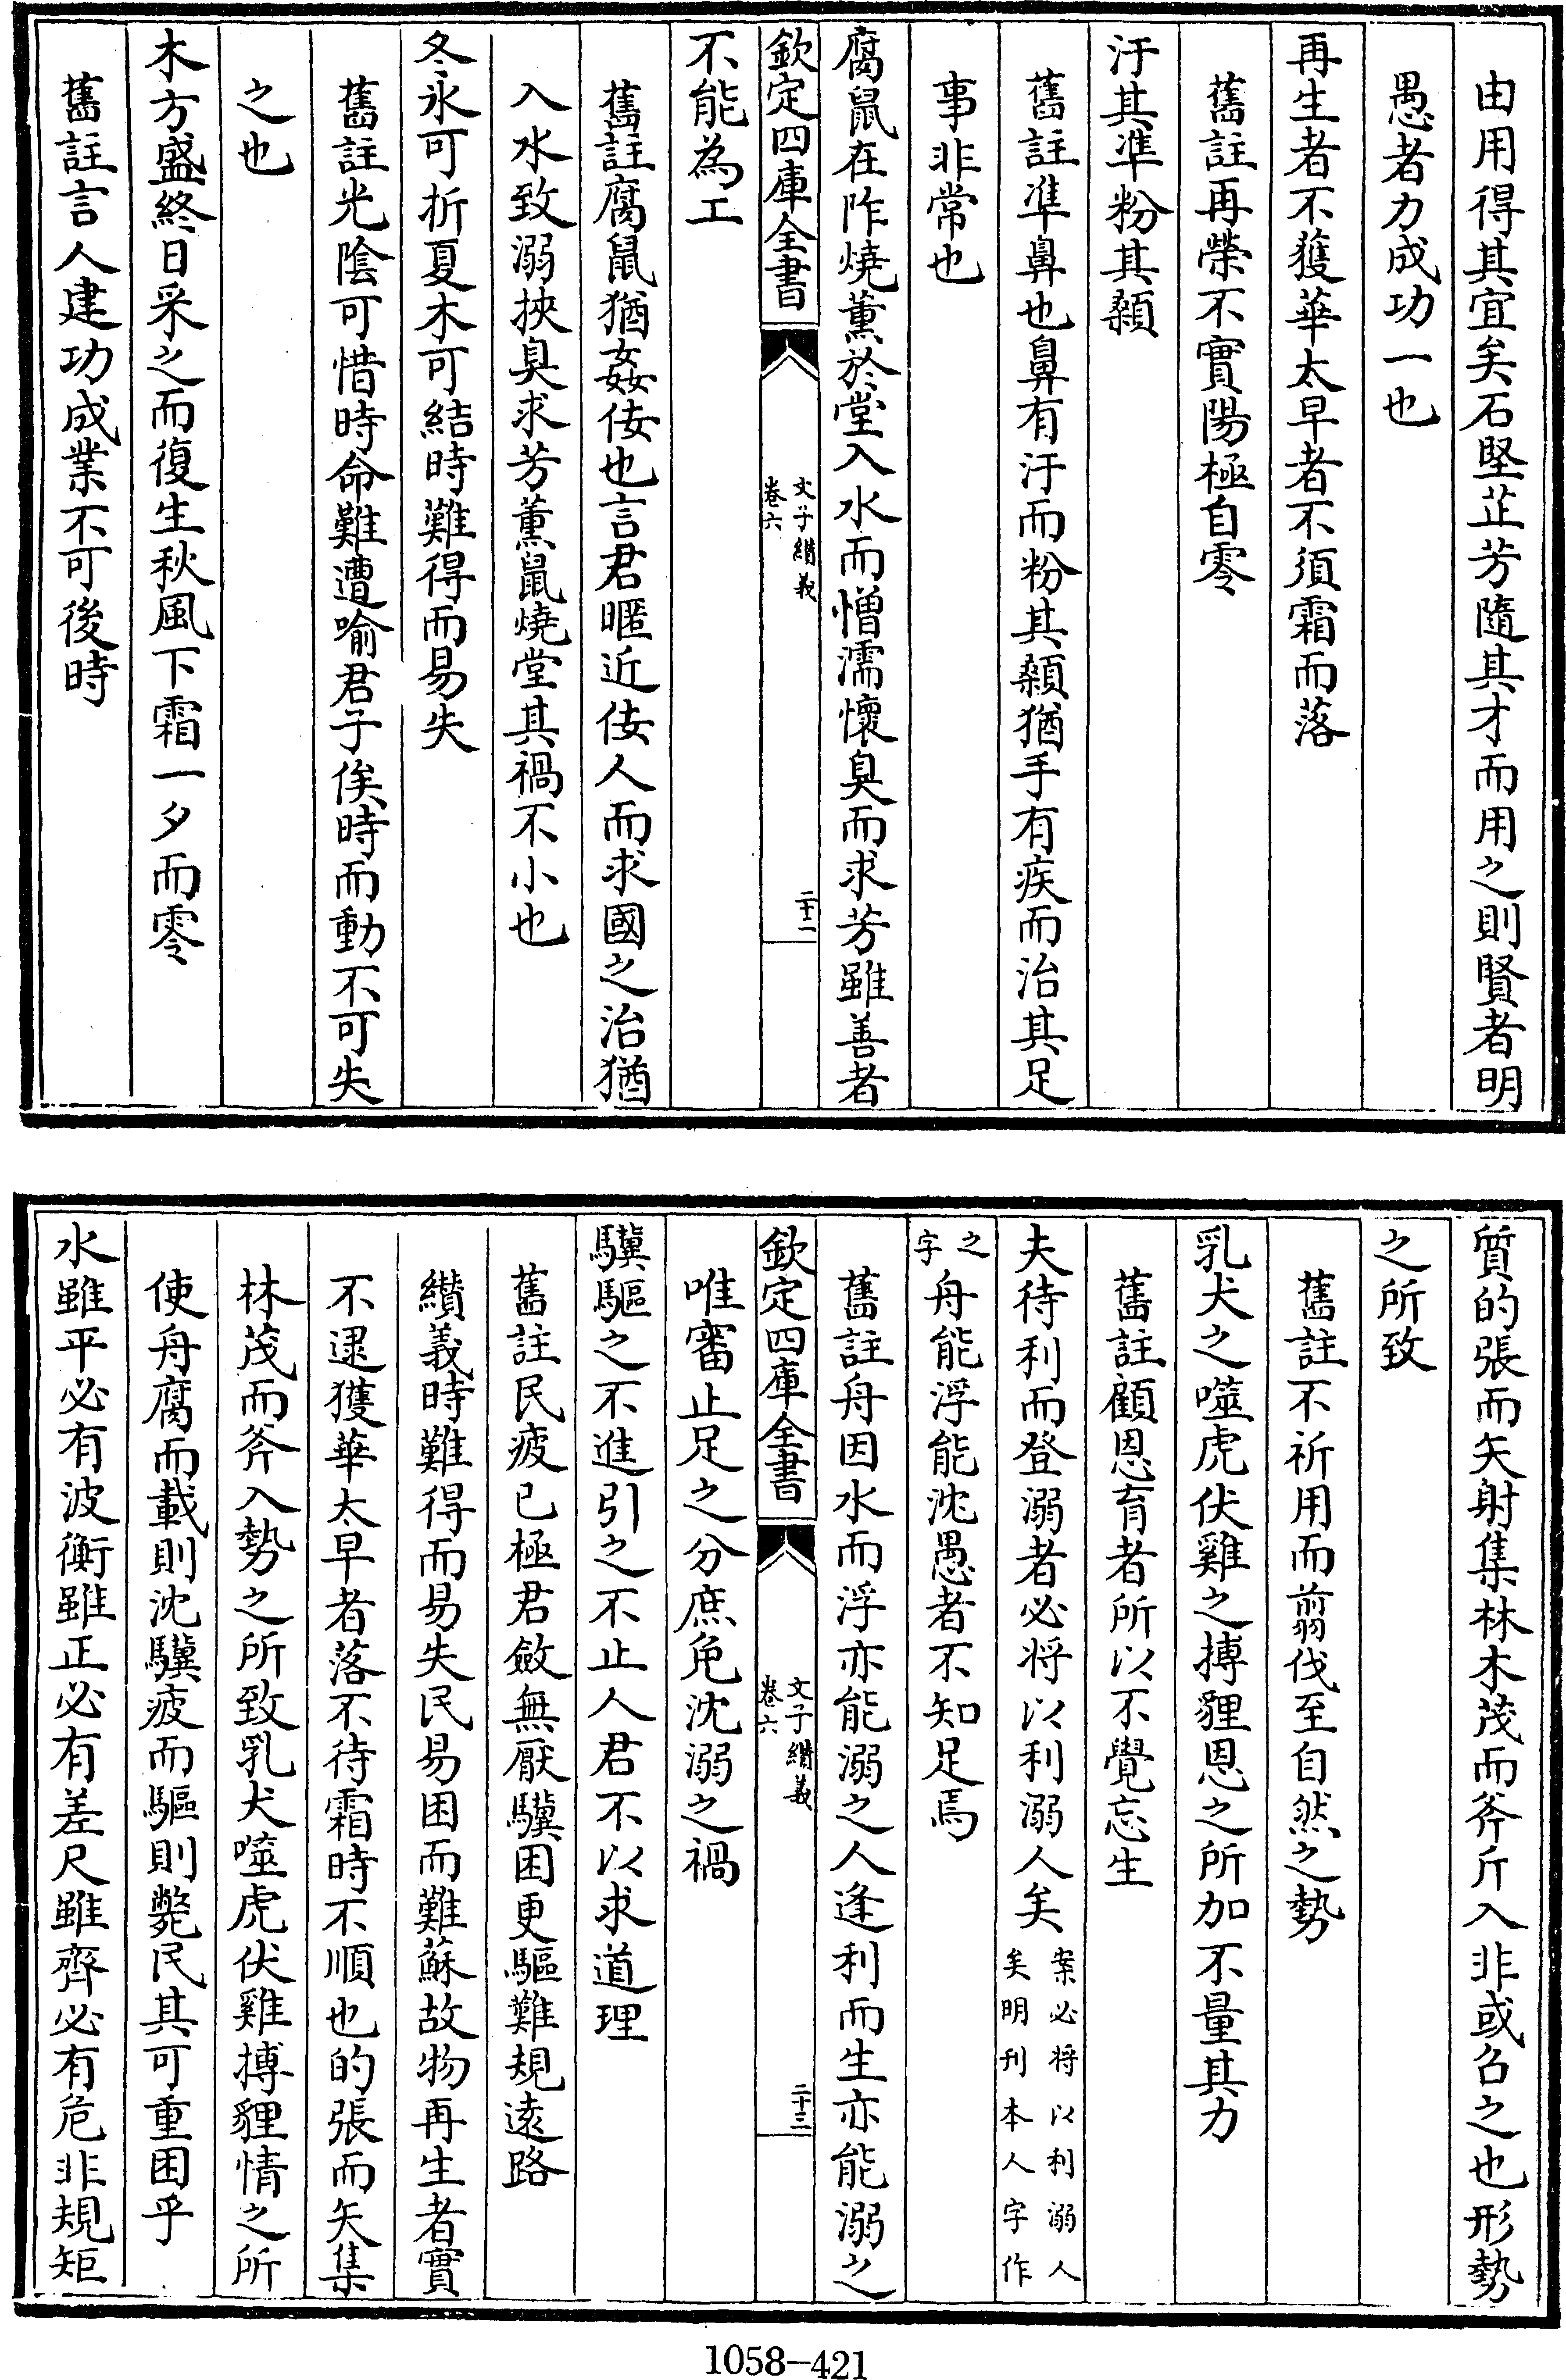 由用得其宜矣石堅芷芳隨其才而用之則賢者明
愚者力成功一也
再生者不獲華太早者不須霜而落
舊註再榮不實陽極自零
汙其準粉其顙
舊註準鼻也鼻有汙而粉其顙猶手有疾而治其足
事非常也
腐鼠在阼燒薰於堂入水而憎濡懷臭而求芳雖善者
欽定四庫全書
文子纘義
卷六
二十二
不能為工
舊註腐鼠猶姦佞也言君暱近佞人而求國之治猶
入水致溺挾臭求芳薰鼠燒堂其禍不小也
冬氷可折夏木可結時難得而易失
舊註光陰可惜時命難遭喻君子俟時而動不可失
之也
木方盛終日采之而復生秋風下霜一夕而零
舊註言人建功成業不可後時
質的張而矢射集林木茂而斧斤入非或召之也形勢
之所致
舊註不祈用而翦伐至自然之勢
乳犬之噬虎伏雞之搏貍恩之所加不量其力
舊註顧恩育者所以不覺忘生
夫待利而登溺者必將以利溺人矣案必將以利溺人
矣明刊本人字作
之
字舟能浮能沈愚者不知足焉
舊註舟因水而浮亦能溺之人逢利而生亦能溺之
欽定四庫全書
文子纘義
卷六
二十三
唯審止足之分庶免沈溺之禍
驥驅之不進引之不止人君不以求道理
舊註民疲已極君斂無厭驥困更驅難規遠路
纘義時難得而易失民易困而難蘇故物再生者實
不逮獲華太早者落不待霜時不順也的張而矢集
林茂而斧入勢之所致乳犬噬虎伏雞搏貍情之所
使舟腐而載則沈驥疲而驅則斃民其可重困乎
水雖平必有波衡雖正必有差尺雖齊必有危非規矩
1058-421